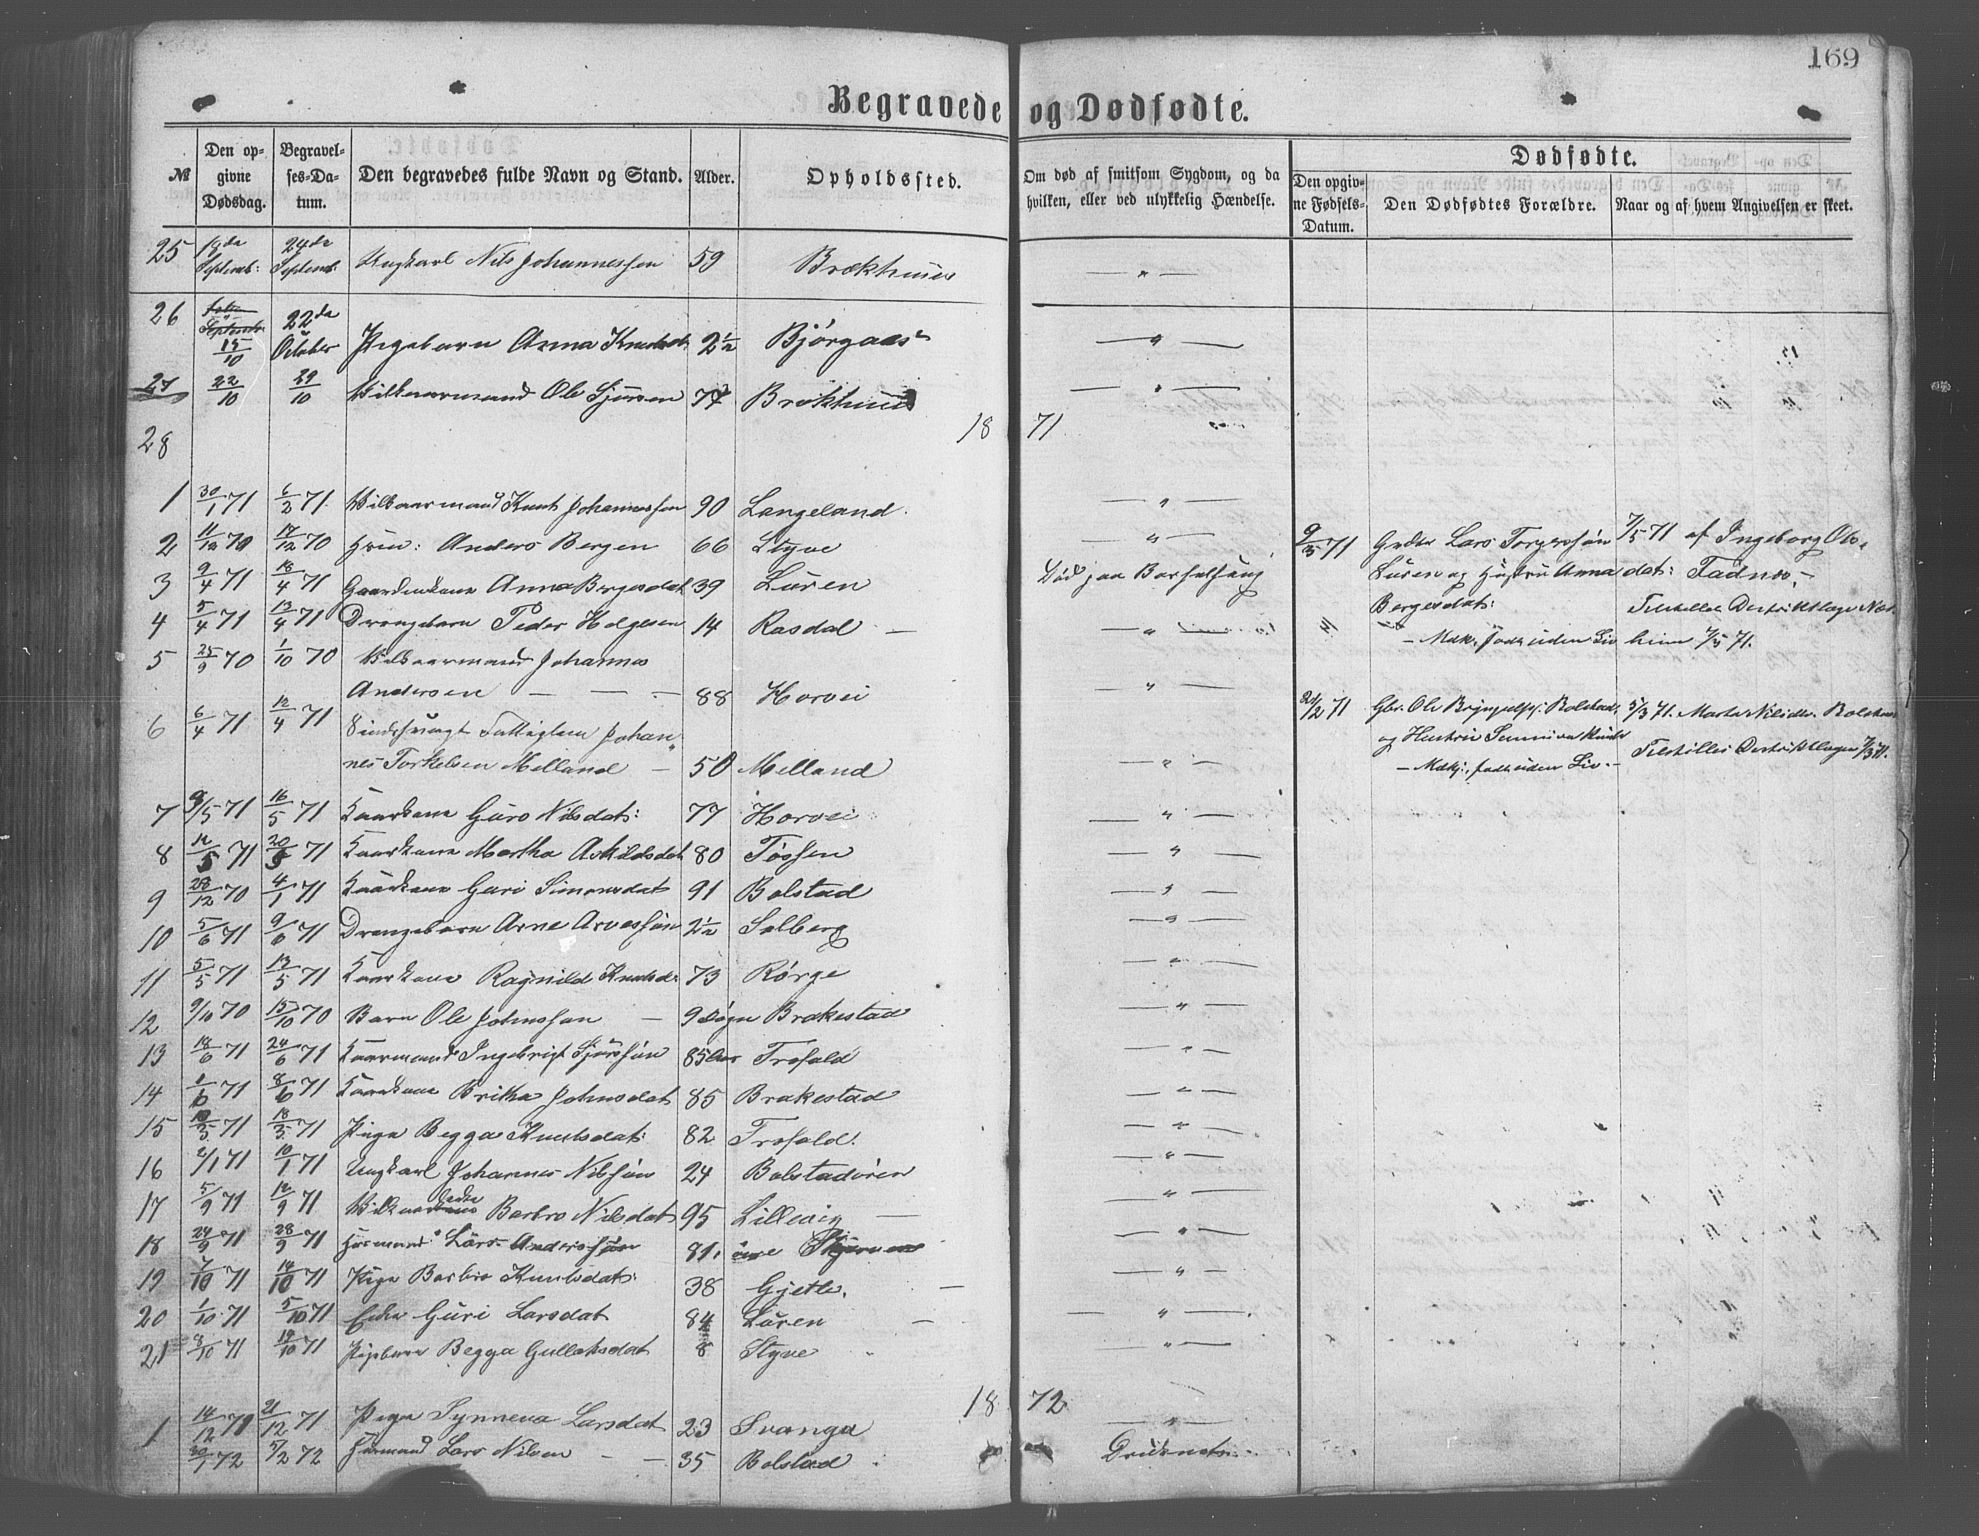 169
Begravede og Dødfødte.
№
Den opgivne Dødsdag.
Begravelses-Datum.
Den begravedes fulde Navn og Stand.
Alder.
Opholdssted.
Om død af smitsom Sygdom, og da hvilken, eller ved ulykkelig Hændelse.
Dødfødte.
Den opgivne Fødsels-Datum.
Den Dødfødtes Forældre.
Naar og af hvem Angivelsen er skeet.
25 19de Septemb: 24de Septemb: Ungkarl Nils Johannessen 59 Brækhuus — " —
26 15/10 22de October Pigebarn Anna Knutsd: 2½ Bjørgaas — " —
27 22/10 29/10 Vilkaarmand Ole Sjursen 77 Brækhuus — " —
28
18 71
1 30/1 71 6/2 71 Vilkaarmand Knut Johannessen 90 Langeland. — " —
2 11/12 70 17/12 70 Anders Bergen 66 Styve — " —
3 9/4 71 18/4 71 Gaardmkone Anna Bergesdat 39 Luren Død paa Barselseng
4 5/4 71 13/4 71 Drengebarn Peder Helgesen 14 Rasdal — — " —
5 25/9 70 1/10 70 Vilkaarmand Johannes
Andersen — — — 88 Horvei — " —
6 6/4 71 12/4 71 Sindssvagt Fattiglem Johan"
nes Torkelsen Melland — 50 Melland — " —
7 9/5 71 16/5 71 Kaarkone Guro Nilsdat: 77 Horvei — " —
8 14/5 71 20/5 71 Kaarkone Martha Askildsdat 80 Tøssen — " —
9 28/12 70 4/1 71 Kaarkone Guri Simonsdat 91 Bolstad — " —
10 5/6 71 9/6 71 Drengebarn Arne Arvesson 2½ Solberg — " —
11 5/5 71 13/5 71 Kaarkone Ragnild Knutsd: 73 Rørge — " —
12 9/10 70 15/10 70 Barn Ole Johnssøn — 9 Døgn Brækestad — " —
13 18/6 71 24/6 71 Kaarmand Ingebrigt Sjurssøn 85 Aar Trofald — " —
14 2/6 71 8/6 71 Kaarkone Britha Johnsdat 85 Brakestad — " —
15 10/3 71 18/3 71 Pige Begga Knutsdat: 82 Trofald. — " —
16 2/1 71 10/1 71 Ungkarl Johannes Nilssøn 24 Bolstadøren — " —
17 5/9 71 12/9 71 Barbro Nilsdat 95 Lillevig — — " —
18 24/9 71 28/9 71 Husmand Lars Anderssøn 81. — " —
19 7/10 71 14/10 71 Pige Barbro Knutsdat: 38 Gjetle. — — " —
20 1/10 71 5/10 71 Enke Guri Larsdat 84 Luren — — " —
21 8/10 71 14/10 71 Pigebarn Begga Gullaksdat 8 Styve — " —
18 72
1 14/12 71 21/12 71 Pige Synneva Larsdat 23 Svanga — " —
30/1 72 5/2 72 Husmand Lars Nilsen — — 35 Bolstad Druknet
9/5 71 Lars Torgerssøn 7/5 71 af Ingeborg Ols-
Luren og Hustru Anna dat: Fadnes. —
Bergesdat:
— Mdk. født uden Liv
21/2 71 Gbr. Ole Brynjulfs. Bolstad, 5/3 71. Marta Nilsdtr. Bolstad
og Hustru Sunniva
— Mdkj. født uden Liv. —